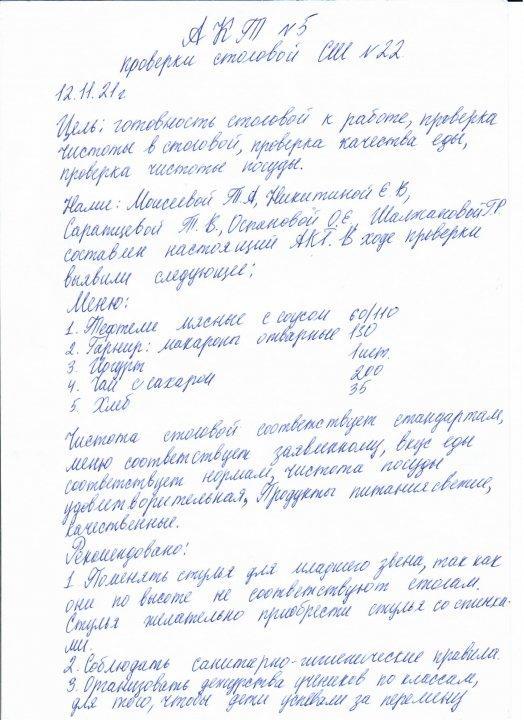 АКТ №5
проверки столовой СШ №22
12.11.21г.
Цель: готовность столовой к работе, проверка
чистоты в столовой, проверка качества еды,
проверка чистоты посуды.
Нами: Моисеевой Т.А, Никитиной Е В,
Сарапцевой Т. В., Оспановой О.Е, Шалжановой Г.Р.
составлен настоящий АКТ. В ходе проверки
выявили следующее;
Меню:
1. Тефтели мясные с соусом 60/110
2. Гарнир: макароны отварные 130
3. Йогурт 1шт.
4. Чай с сахаром 200
5. Хлеб 35
Чистота столовой соответствует стандартам,
меню соответствует заявленному, вкус еды
соответствует нормам, чистота посуды
удовлетворительная, Продукты питания свежие,
качественные.
Рекомендовано:
1. Поменять стулья для младшего звена, так как
они по высоте не соответствуют столам.
Стулья желательно приобрести стулья со спинка-
ми.
2. Соблюдать санитарно-гигиенические правила.
3. Организовать дежурства учеников по классам,
для того, чтобы дети успевали за перемену